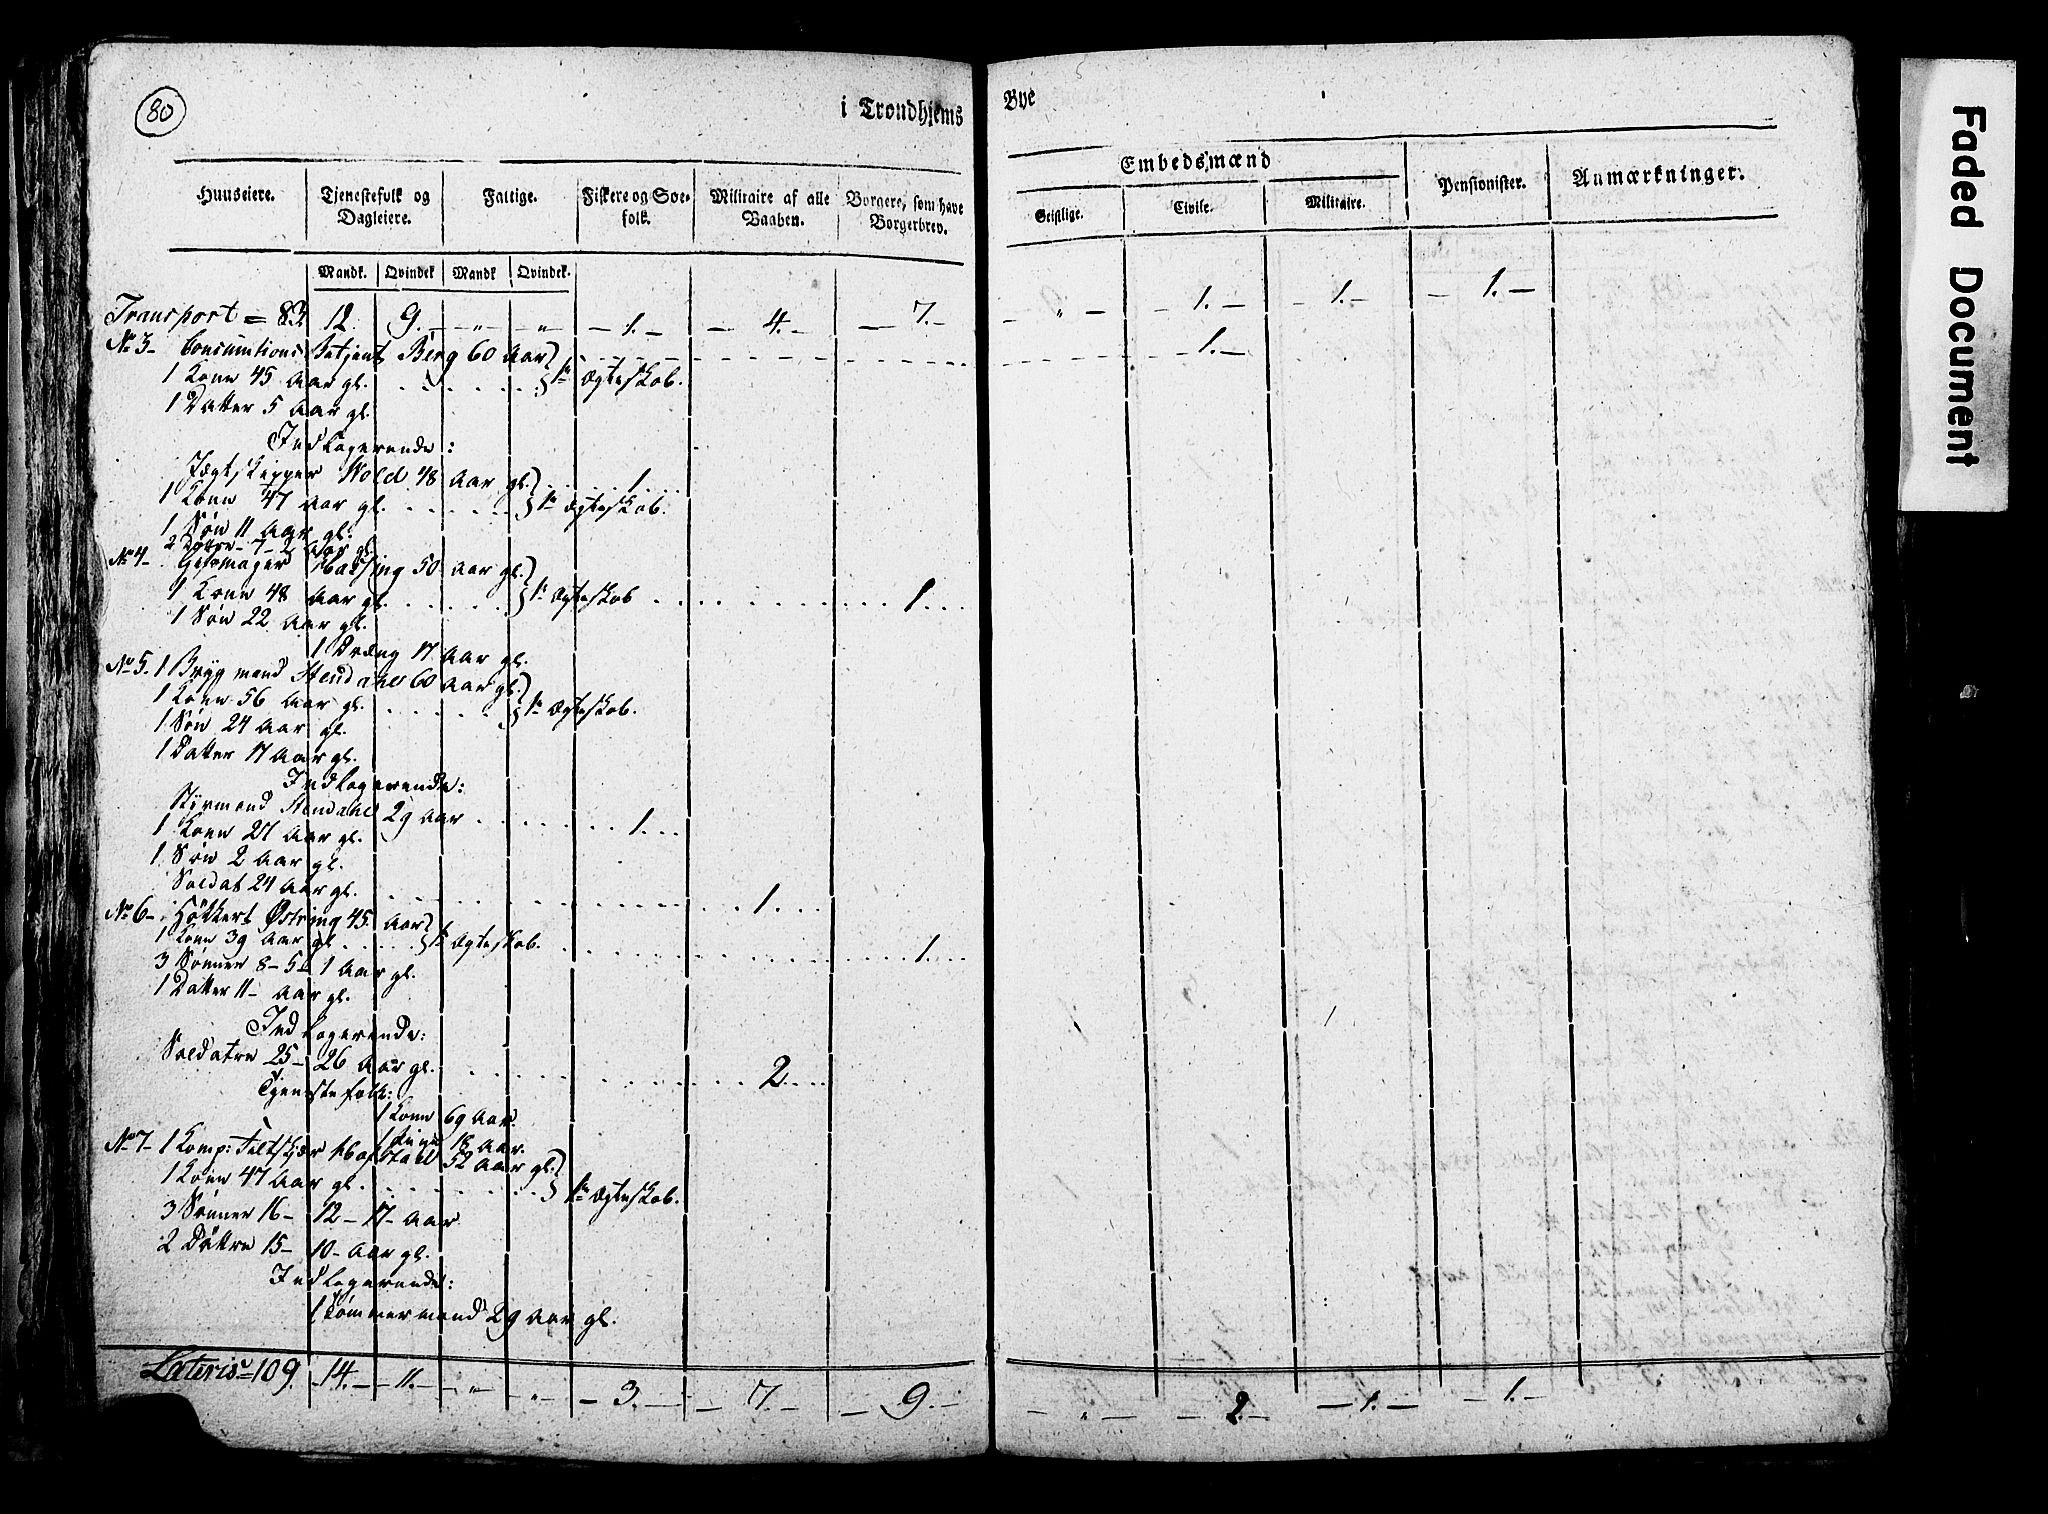 80
i Trondhjems Bye
Huuseiere. Tjenestefolk og Dagleiere. Fattige. Fiskere og Søefolk. Militaire af alle Vaaben. Borgere, som have Borgerbrev. Embedsmænd Geistlige. Civile. Militaire. Pensionister. Anmærkninger.
Mandk. Qvindek Mandk Qvindek.
Transport = 83 12. 9. — „ — „ — 1. — — 4. — — 7. — — „ — 1. — — 1. — — 1. —
No 3 – Consumtions Betjent Berg 60 Aar 1.
1 Kone 45 Aar gl. 1te Ægteskab.
1 Datter 5 Aar gl.
Indlogerende:
Jægtskipper Wold 48 Aar gl. 1
1 Kone 47 Aar gl. 1te Ægteskab.
1 Søn 11 Aar gl.
2 Døtre – 7 – 2 Aar gl.
No 4 – Hassing 50 Aar gl.
1 Kone 48 Aar gl. 1te Ægteskab 1
1 Søn 22 Aar gl.
1 Dræng 17 Aar gl.
No 5. 1 Brygmand Stendahl 60 Aar gl.
1 Kone 56 Aar gl. 1te Ægteskab.
1 Søn 24 Aar gl.
1 Datter 17 Aar gl.
Indlogerende:
Styrmand Stendahl 29 Aar 1
1 Kone 27 Aar gl.
1 Søn 2 Aar gl.
Soldat 24 Aar gl. 1
No 6 – Høkkert Østring 45 Aar
1 Kone 39 Aar gl. 1te Ægteskab. 1
3 Sønner 8 – 5 – 1 Aar gl.
1 Datter 11 – Aar gl.
Indlogerende:
Soldatre 25 – 26 Aar gl. 2
Tjenestefolk:
1 Kone 69 Aar.
1 18 Aar.
No 7 – 1 Komp: Feltskjær Hafstad 52 Aar gl.
1 Kone 47 Aar gl. 1te Ægteskab.
3 Sønner 16 – 12 – 17 – Aar
2 Døttre 15 – 10 – Aar gl.
Indlogerende:
1 Tømmermand 29 Aar gl.
Lateris – 109. 14. — 11. — „ — „ — 3. — — 7. — — 9. — — „ — 2. — — 1. — — 1. —
Faded Document